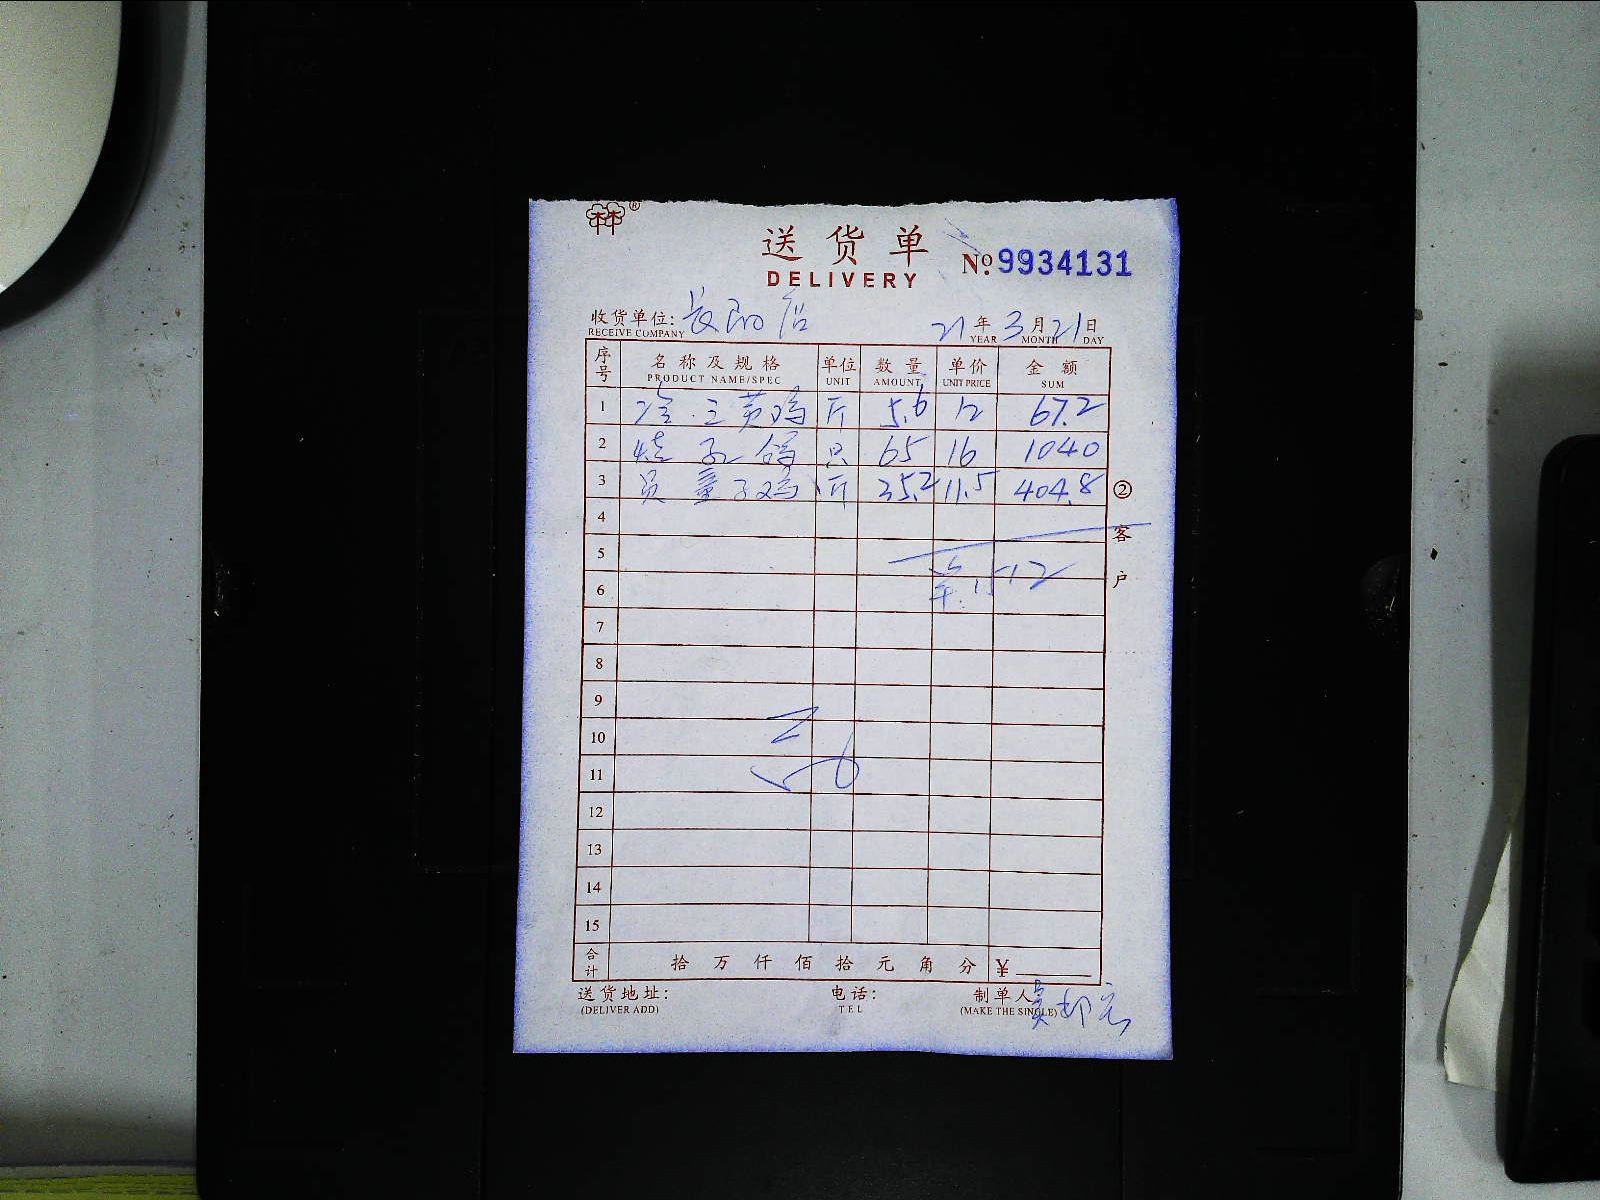 送货单
DELIVERY
Nº 9934131
收货单位: 长阳店 21年3月21日
RECEIVE COMPANY YEAR MONTH DAY
序号 名称及规格 单位 数量 单价 金额
PRODUCT NAME/SPEC UNIT AMOUNT UNIT PRICE SUM
1 冷.三黄鸡 斤 5.6 12 67.2
2 烧乳鸽 只 65 16 1040
3 童子鸡 斤 35.2 11.5 404.8
4
5
6 1512
7
8
9
10
11
12
13
14
15
合计 拾万仟佰拾元角分 ¥
送货地址: 电话: 制单人
(DELIVER ADD) TEL (MAKE THE SINGLE)
②客户